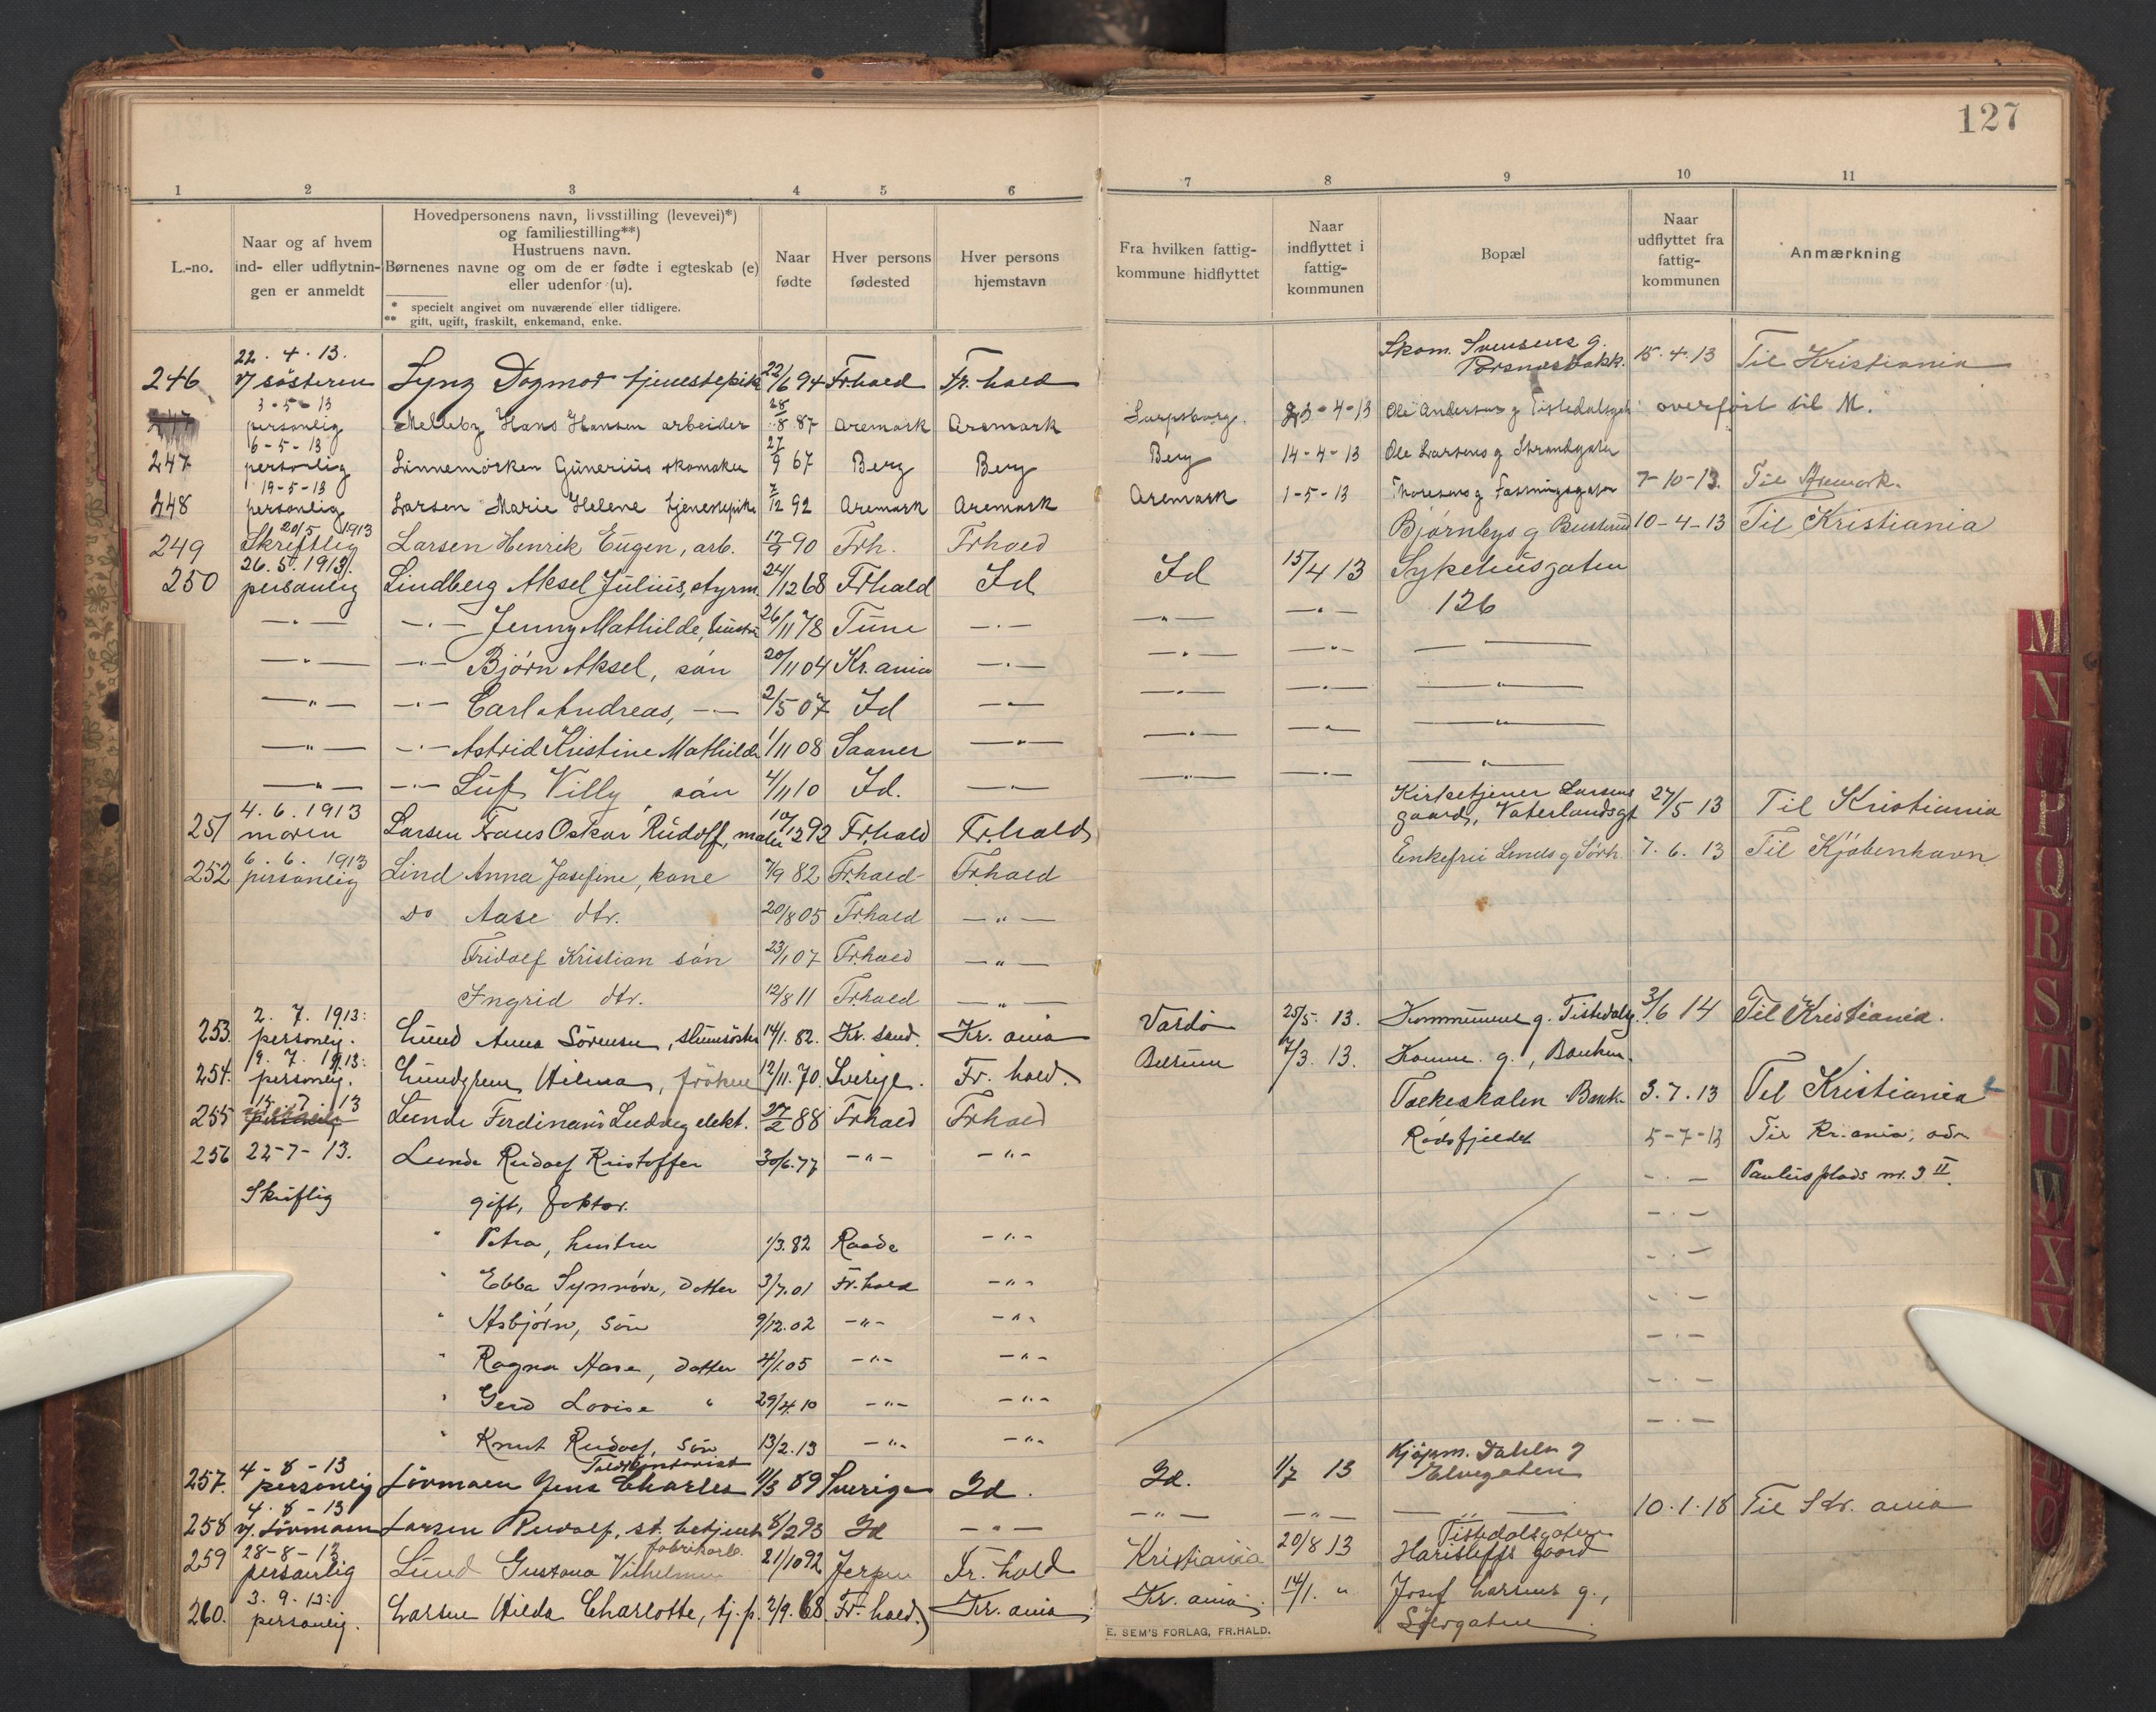 127
1 2 3 4 5 6 7 8 9 10 11
L.-no.
Naar og af hvem
ind- eller udflytnin-
gen er anmeldt
Hovedpersonens navn, livsstilling (levevei)*)
og familiestilling**)
Hustruens navn.
Børnenes navne og om de er fødte i egteskab (e)
eller udenfor (u).
* specielt angivet om nuværende eller tidligere.
** gift, ugift, fraskilt, enkemand, enke.
Naar
fødte
Hver persons
fødested
Hver persons
hjemstavn
Fra hvilken fattig-
kommune hidflyttet
Naar
indflyttet i
fattig-
kommunen
Bopæl
Naar
udflyttet fra
fattig-
kommunen
Anmærkning
22. 4. 13. Skom. Svensens g.
246 v/ søsteren Lyng Dagmar tjenestepike 22/6 94 Frhald Fr. hald Porsnesbakk. 15.4.13 Til Kristiania
3-5-13
personlig Melleby Hans Hansen arbeider 28/8 87 Aremark Aremark Sarpsborg 23-4-13 Ole Andersens g Tistedalsgt overført til M.
6-5-13
247 personlig Linnemørken Gunerius skomaker 27/9 67 Berg Berg Berg 14-4-13 Ole Larsens g Strandgaten
19-5-13
248 personlig Larsen Marie Helene tjenestepike 7/12 92 Aremark Aremark Aremark 1-5-13 Thoresens g 7-10-13. Til Aremark.
20/5 1913
249 Skriftlig Larsen Henrik Eugen, arb. 17/9 90 Frh. Frhald Bjørnbys g Busterud 10-4-13 Til Kristiania
26.5.1913.
250 personlig Lindberg Aksel Julius, styrm. 24/12 68 Frhald Id Id 15/4 13 Sykehusgaten
—"— —"— Jenny Mathilde, hustru 26/11 78 Tune —"— —"— —"— 126
—"— —"— Bjørn Aksel, søn 20/11 04 Kr.ania —"— —"— —"— —"—
—"— —"— Carl Andreas, —"— 2/5 07 Id —"— —"— —"— —"—
—"— —"— Astrid Kristine Mathilde 1/11 08 Saaner —"— —"— —"— —"—
—"— —"— Luf Villy, søn 4/11 10 Id. —"— —"— —"— —"—
4. 6. 1913 Kirketjener Larsens
251 moren Larsen Frans Oskar Rudolf, maler 10/12 92 Frhald Fr.hald gaard, Vaterlandsgt 27/5 13 Til Kristiania
6. 6. 1913
252 personlig Lind Anna Josefine, kone 7/9 82 Frhald Frhald Enkefru Linds g Sørh. 7.6.13 Til Kjøbenhavn
do Aase dtr. 20/8 05 Frhald —"—
Fridolf Kristian søn 23/1 07 Frhald —"—
Ingrid dtr. 12/8 11 Frhald —"—
2. 7. 1913:
253. personlig. Lund Anna Sørensen, slumsøster 14/1. 82. Kr. sand. Kr. ania Vardø 25/5. 13. Kommunens g. Tistedalsg. 3/6 14 Til Kristiania.
9. 7. 1913:
254. personlig. Lundgren Hilma, frøken 12/11. 70. Sverige. Fr. hald. Bærum 7/3. 13. Komm. g., Banken.
15. 7. 13
255 personlig Lunde Ferdinand Ludvig elekt. 27/2 88 Frhald Frhald Bank. 3.7.13 Til Kristiania
256 22-7-13. Lunde Rudolf Kristoffer 30/6.77 —"— —"— Rødsfjeldet 5-7-13 Til Kr.ania, adr
Skriftlig gift, faktor. —"— Paulus plads nr. 3 II.
" Petra, hustru 1/3.82 Raade —"— —"—
" Ebba Synnøve, datter 3/7.01 Fr.hald —"— —"—
" Asbjørn, søn 9/12.02 —"— —"— —"—
" Ragna Aase, datter 4/1.05 —"— —"— —"—
" Gerd Lovise " 29/4.10 —"— —"— —"—
" Knut Rudolf, søn 13/2.13 —"— —"— —"—
4-8-13 Toldkontorist Kjøpm. Dahls g
257. personlig Lövmaen Jens Charles 11/3 89 Sverige Id. Id. 1/7 13 Elvegaten
4. 8-13
258 v/ Lövmaen Larsen Rudolf, st. betjent 8/2 93 Id —"— —"— —"— —"— 10.1.18 Til Kr. ania
28-8-13 fabrikarb. Tistedalsgaten
259 personlig Lund Gustava Vilhelmine 21/10 92 Jerpen Fr. hald Kristiania 20/8 13 gaard
3. 9. 13:
260. personlig. Larsen Hilda Charlotte, tj. p. 2/9. 68 Fr. hald. Kr. ania Kr. ania. 14/1. " Josef Larsens g.,
Sølvgaten
E. SEM'S FORLAG, FR.HALD.
M
N
O
P
Q
R
S
T
U
W
X
Y
Ø